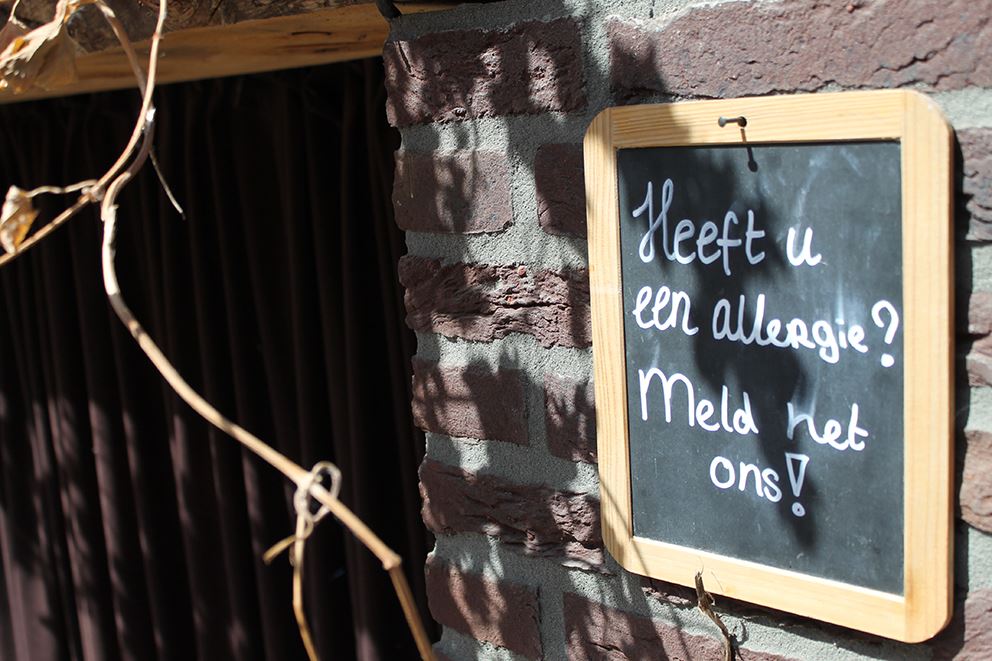 Heeft u
een allergie?
Meld het
ons!